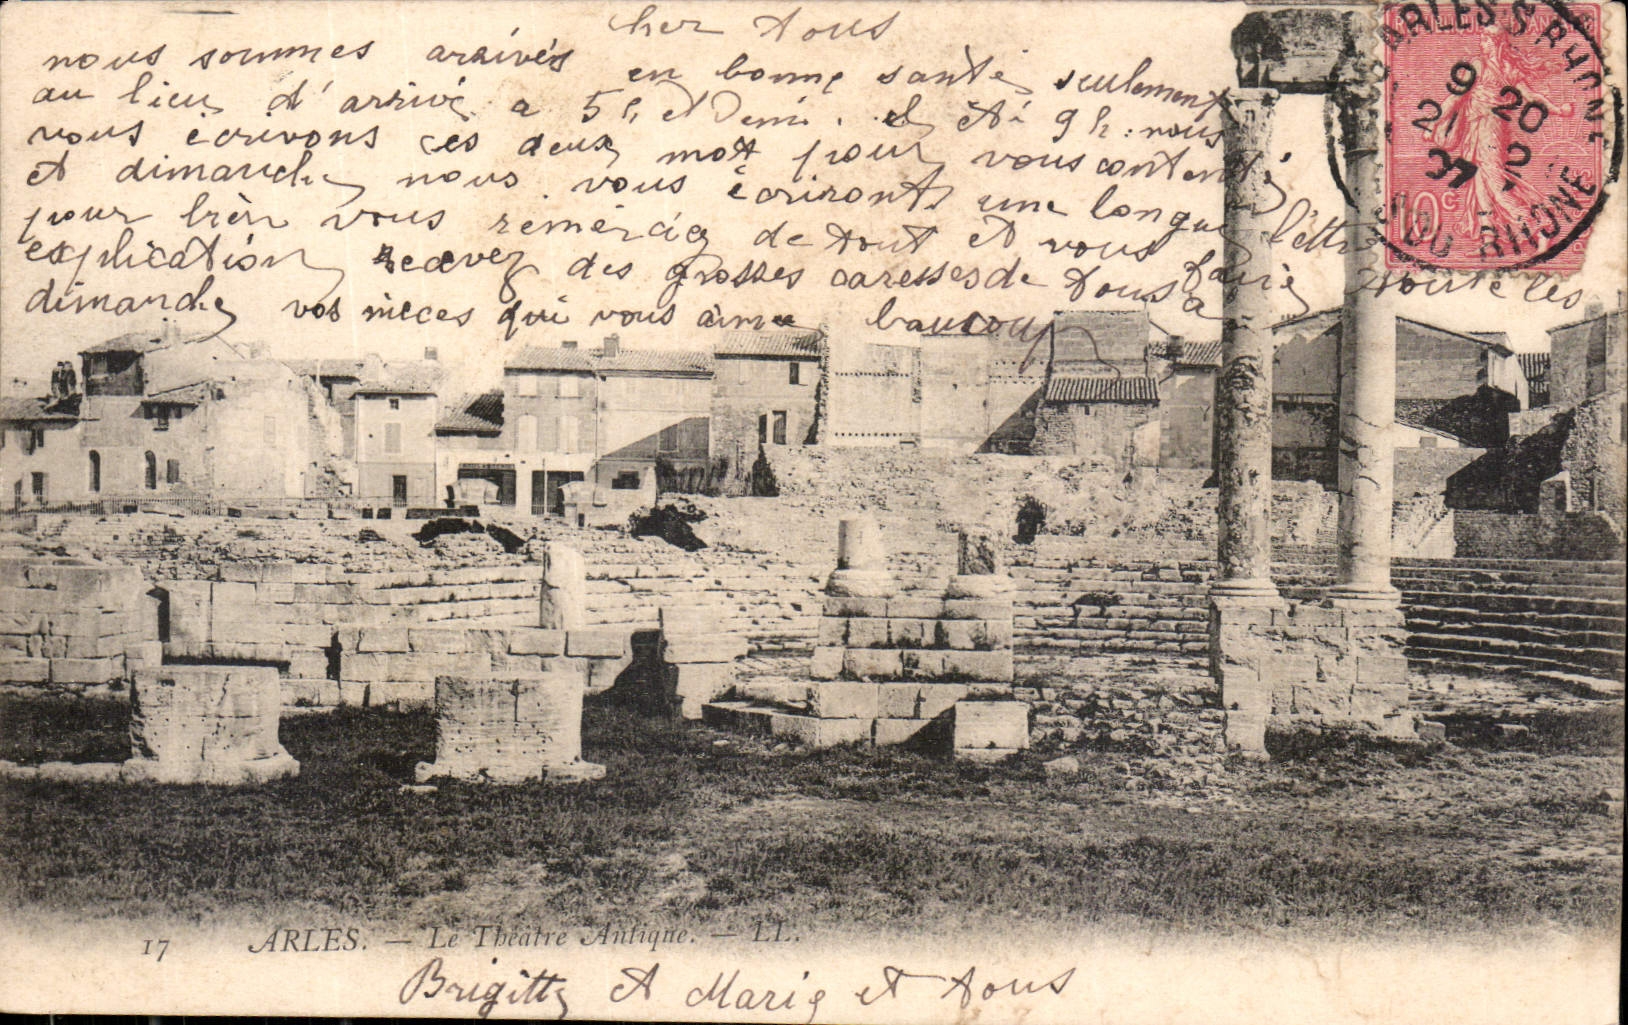 cher tous
nous sommes arrivés en bonne santé seulement
au lieu d'arrivé a 5h et Demi. et été 9h: nous
vous écrivons ces deux mott pour vous contenté
et dimanche nous vous écriront une longue lettre
pour bien vous rémércieg de tout et vous fairé toute les
explication recevez des grosses caresses de tous a
dimanche vos nièces qui vous aime baucoup
ARLES S RHONE
9
21 20
07 2
BOUCHES DU RHONE
10 c
17 ARLES. — Le Théâtre Antique. — LL.
Brigitte et Marie et tous